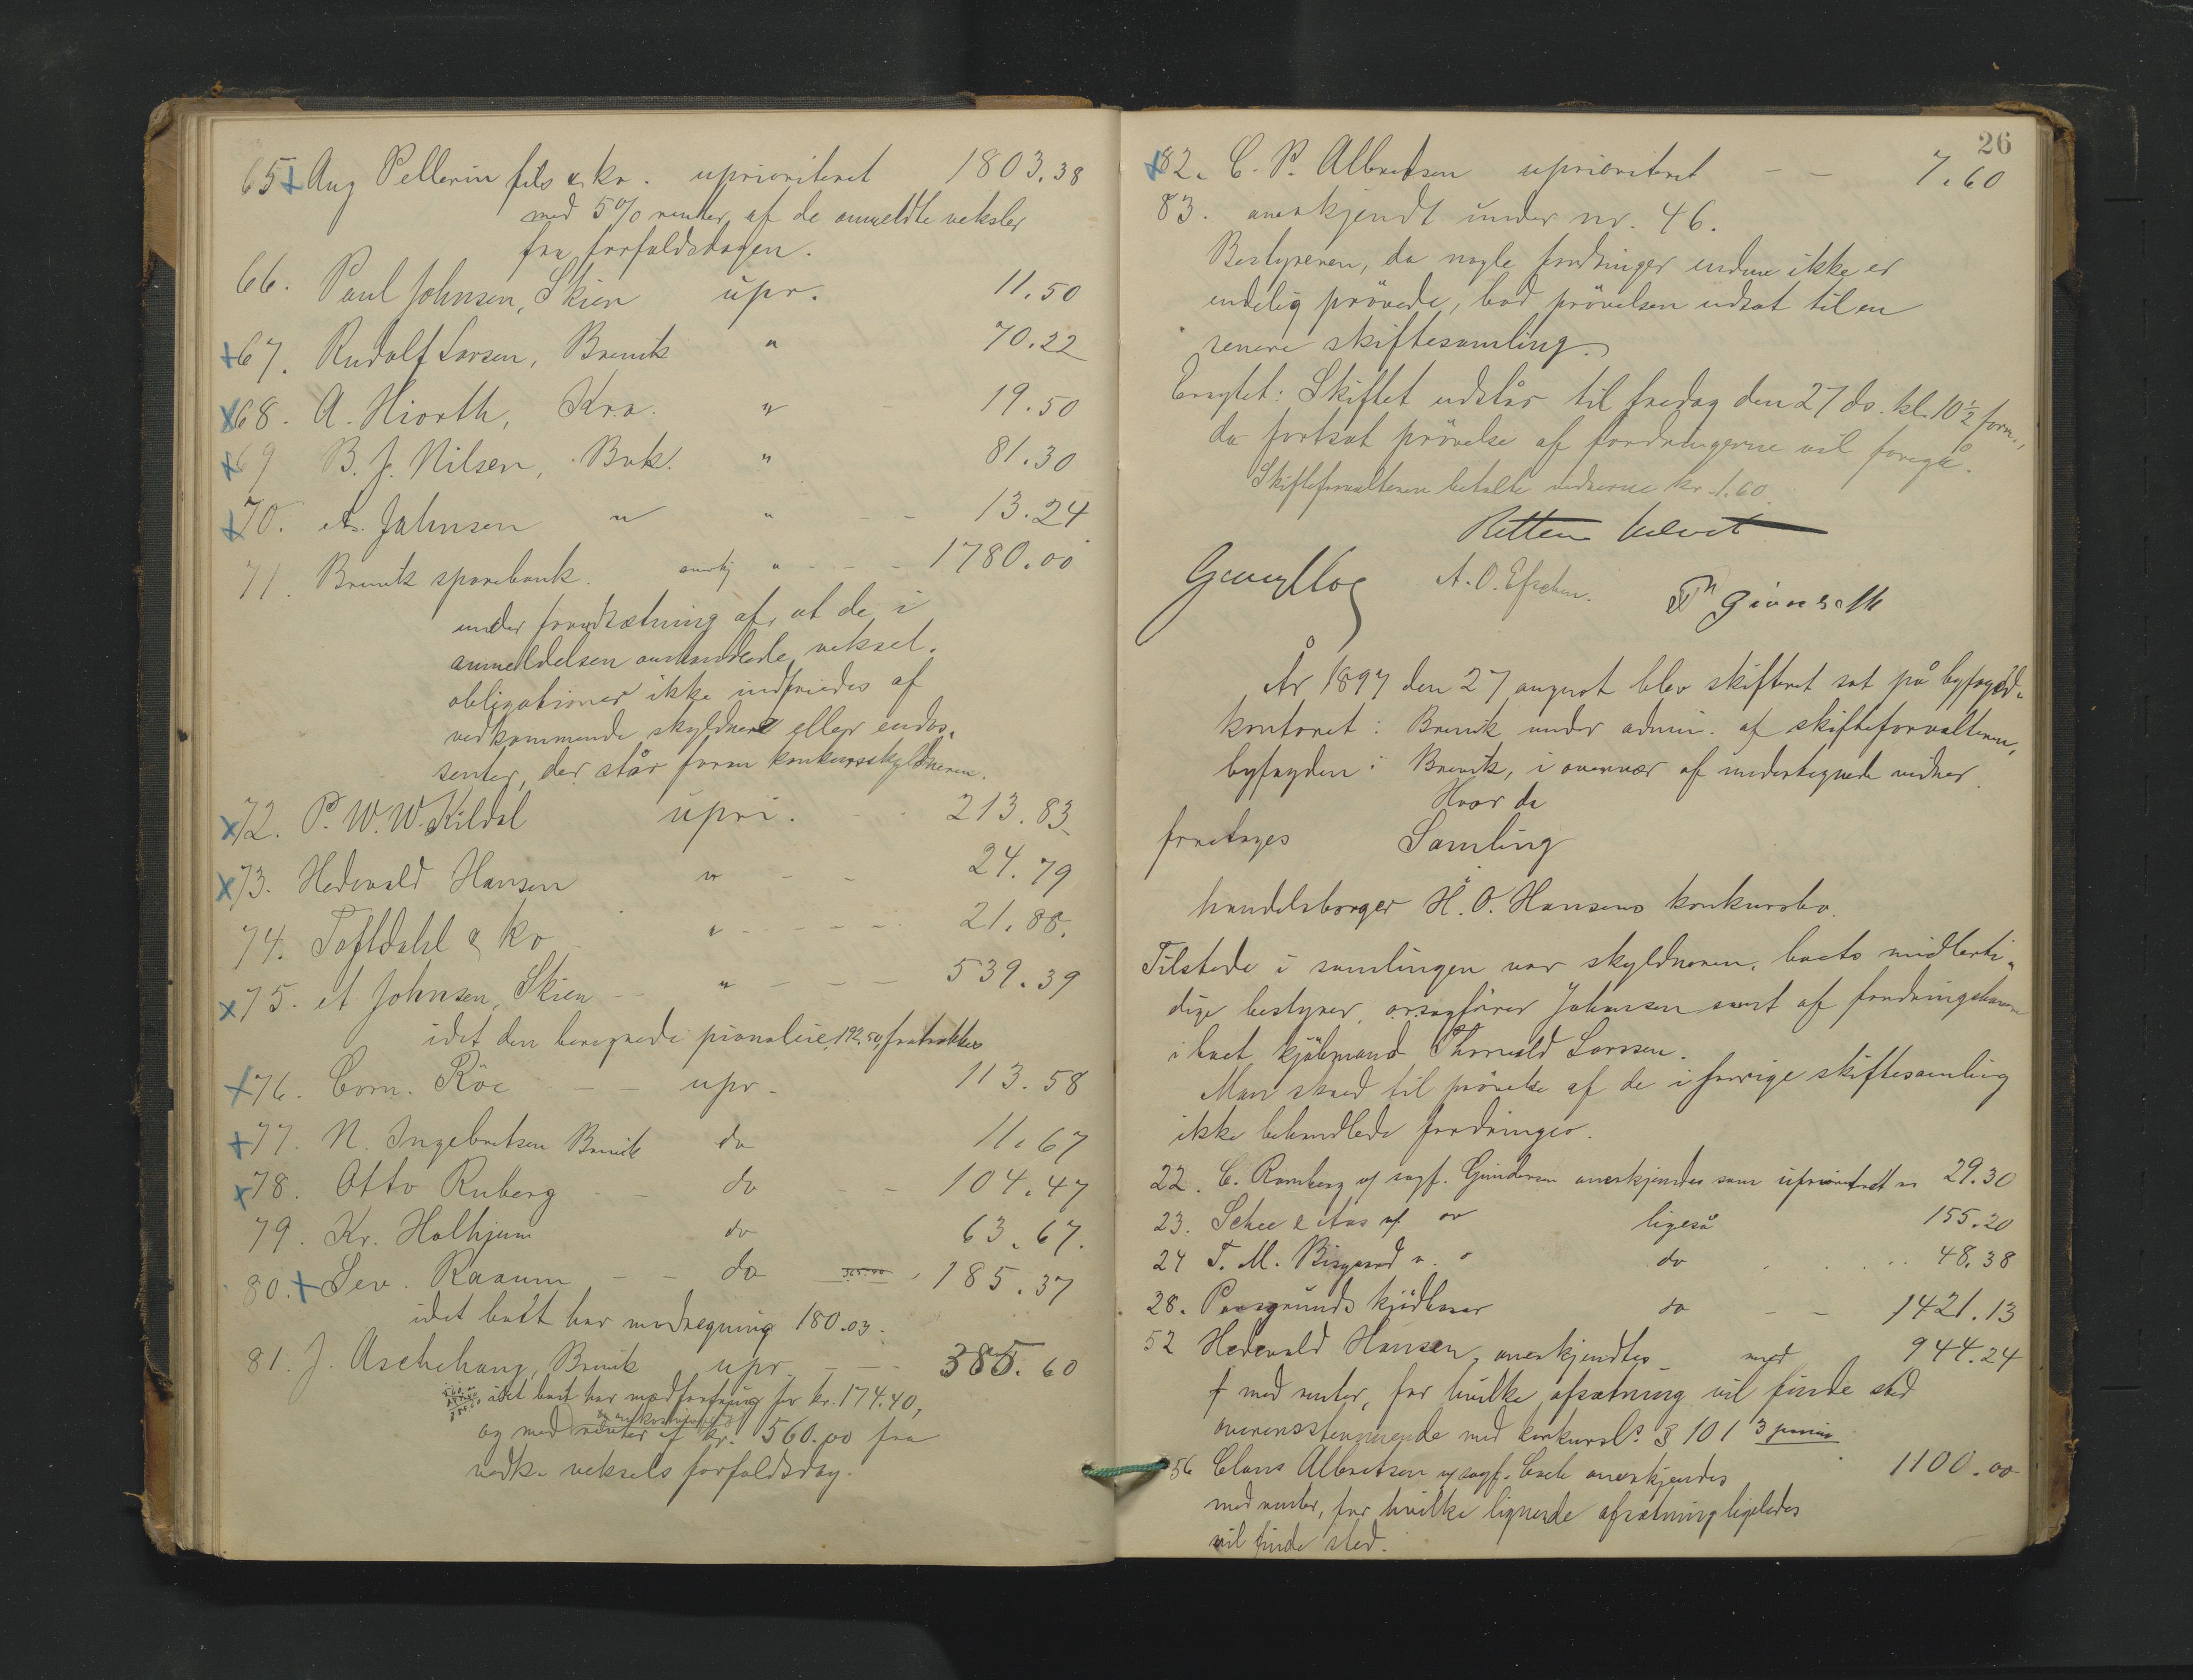 65. Aug Pellerin fils & ko. uprioriteret 1803.38
med 5% renter af de anmeldte veksler
fra forfaldsdagen.
66. Paul Johnsen, Skien upr. 11.50
67. Rudolf Larsen, Brevik " 70.22
68. A. Hiorth, Kra. " 19.50
69 B. J. Nilsen, Bvk. " 81.30
70. A. Johnsen " " 13.24
71. Brevik sparebank. anerkj " 1780.00
under forudsætning af, at de i
anmeldelsen omhandlede veksel.
obligationer ikke indfriedes af
vedkommende skyldnere eller endos.
senter, der står foran konkursskyldneren.
72. P. W. W. Kildal upri. 213.83
73. Hedevald Hansen " 24.79
74. Toftdahl & ko " 21.88.
75. A Johnsen, Skien " 539.39
idet den beregnede pianoleie, 192,50, fratrækkes
76. Corn. Röe upr. 113.58
77. N. Ingebretsen Brevik do 11.67
78. Otto Ruberg do 104.47
79. Kr. Holhjem do 63.67.
80. Sev. Raaum do 365.40 185.37
idet boet har modregning 180.03.
81. J. Aschehoug, Brevik upr. 385.60
idet boet har modfordring for kr. 174.40,
og med renter af kr. 560.00 fra
vedk. veksels forfaldsdag.
26
82. C. P. Albretsen uprioriteret 7.60
83. anerkjendt under nr. 46.
Bestyreren, da nogle fordringer endnu ikke er
endelig prövede, bad prövelsen udsat til en
senere skiftesamling.
Eragtet: Skiftet udstår til fredag den 27 ds. kl. 10½ form.,
da fortsat prövelse af fordringerne vil foregå.
Skifteforvalteren betalte vidnerne kr. 1.60.
Retten hævet
A. O.
År 1897 den 27 august blev skifteret sat på byfogd-
kontoret i Brevik under admin. af skifteforvalteren,
byfogden i Brevik, i overvær af undertegnede vidner.
Hvor da
foretoges Samling
i
handelsborger H. O. Hansens konkursbo.
Tilstede i samlingen var skyldneren, boets midlerti-
dige bestyrer, orsagförer Johansen samt af fordringshavere
i boet kjöbmand Thorvald Larssen.
Man skred til prövelse af de i forrige skiftesamling
ikke behandlede fordringer.
22. C. Romberg v/ sagf. Gundersen anerkjendes som uprioriteret m 29.30
23. Schee & Aas v/ do ligeså 155.20
24 T. M. Bisgaard " " do 48.38
28. Porsgrunds kjödbasar do 1421.13
52 Hedevald Hansen, anerkjendtes med 944.24
med renter, for hvilke afsætning vil finde sted
overensstemmende med konkursl. § 101
56 Claus Albretsen v/ sagf. anerkjendes 1100.00
med renter, for hvilke lignende afsætning ligeledes
vil finde sted.